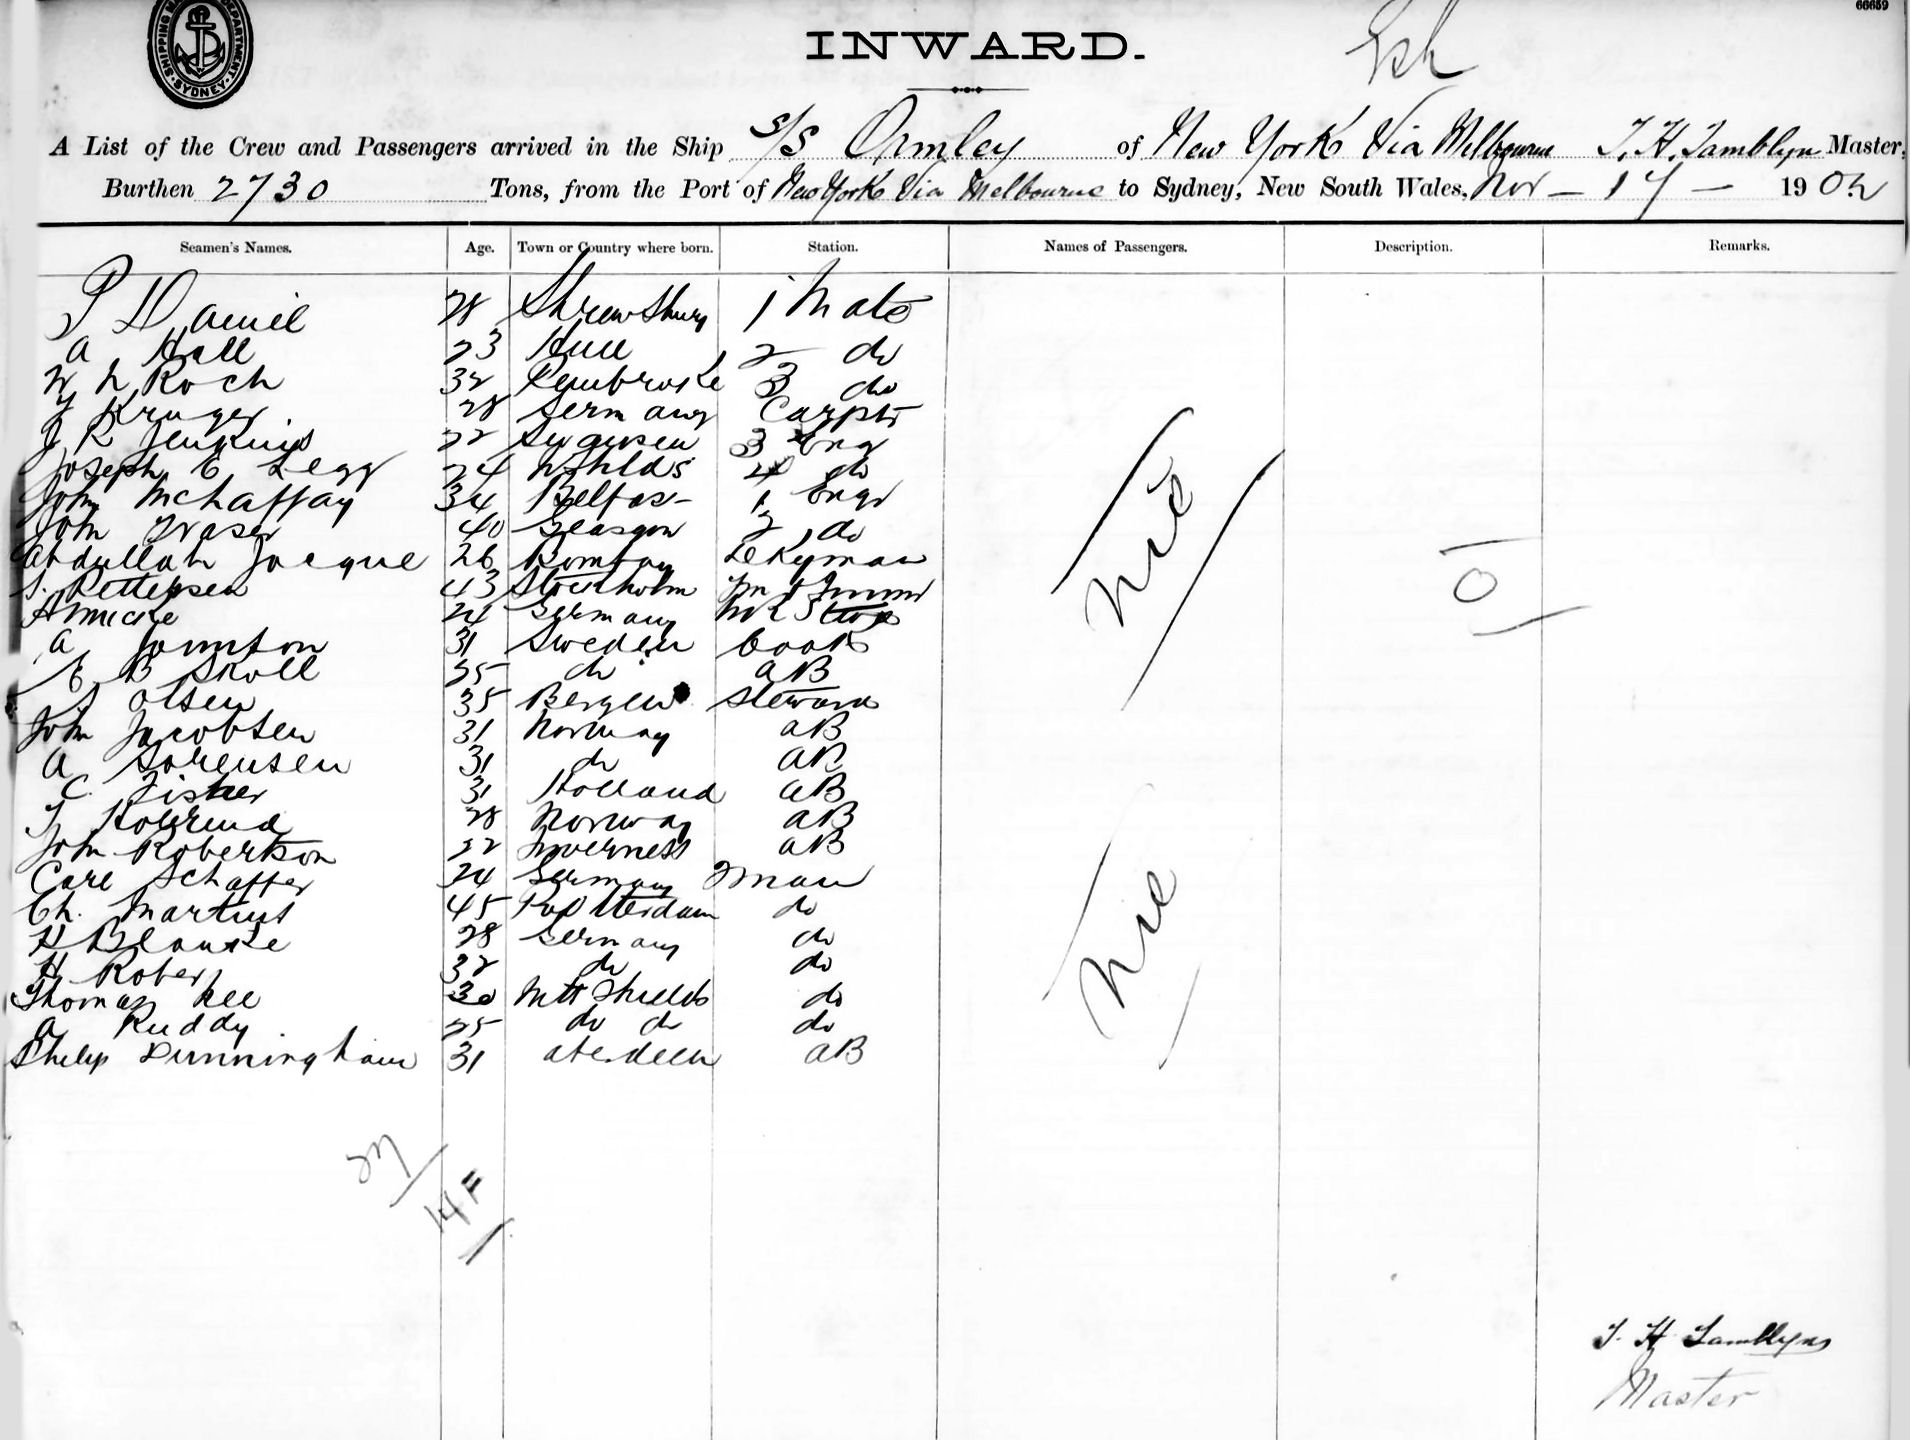 66659
SHIPPING MA DEPARTMENT SYDNEY
INWARD.
A List of the Crew and Passengers arrived in the Ship S/S Ormley of New York Via Melbourne T. H. Tamblyn Master,
Burthen 2730 Tons, from the Port of New York Via Melbourne to Sydney, New South Wales, Nov - 17 - 1902
Seamen's Names. Age. Town or Country where born. Station. Names of Passengers. Description. Remarks.
P Daniel 28 Shrewsbury 1 Mate
A Hall 23 Hull 2 do
W Roch 32 Pembroke 3 do
Kruger 28 Germany Carptr
J R Jenkins 22 3 Eng
Joseph E Legg 24 4 do
John McHaffay 34 Belfas- 1 Engr
John Fraser 40 Glasgow 2 do
Abdullah Jacque 26 Bombay Dkyman
Pettersen 43 Stockholm
24 Germany
A 31 Sweden Cook
E B Skoll 25 do AB
Olsen 35 Bergen Steward
John Jacobsen 31 Norway AB
A Sorensen 31 do AB
C. Fisher 31 Holland AB
28 Norway AB
John Robertson 22 Inverness AB
Carl Schaffer 24 Germany Fman
Ch. Martins 45 Rotterdam do
28 Germany do
H Robert 32 do do
Thomas Kee 30 Nth Shields do
A Ruddy 25 do do do
Philip Dunningham 31 Aberdeen AB
Nil
Nil
0
27
14 F
T. H Tamblyn
Master